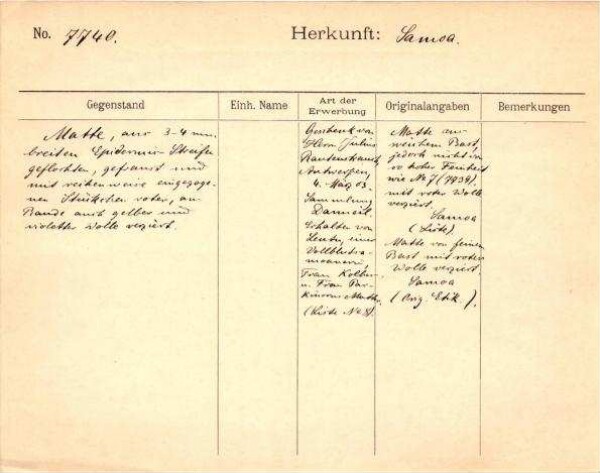 No. 7740. Herkunft: Samoa.
Gegenstand
Matte, aus 3-4 mm.
breiten Epidermis-Streifen
geflochten, gefranst und
mit reihenweise eingezoge-
nen Stückchen roter, am
Rande auch gelber und
violetter Wolle verziert.
Einh. Name
Art der
Erwerbung
Geschenk von
Herrn Julius
Rautenstrauch
Antwerpen,
4. März 03.
Sammlung
Erhalten von
einer
Vollblutsa-
moanerin,
Frau
u. Frau Par-
kinsons Mutter
(Liste No 8).
Originalangaben
Matte aus
weichem Bast,
jedoch nicht von
so hoher Feinheit
wie No 7 (7739),
mit roter Wolle
verziert.
Samoa
(Liste).
Matte von feinem
Bast mit roter
Wolle verziert.
Samoa
(Orig. Etik.).
Bemerkungen